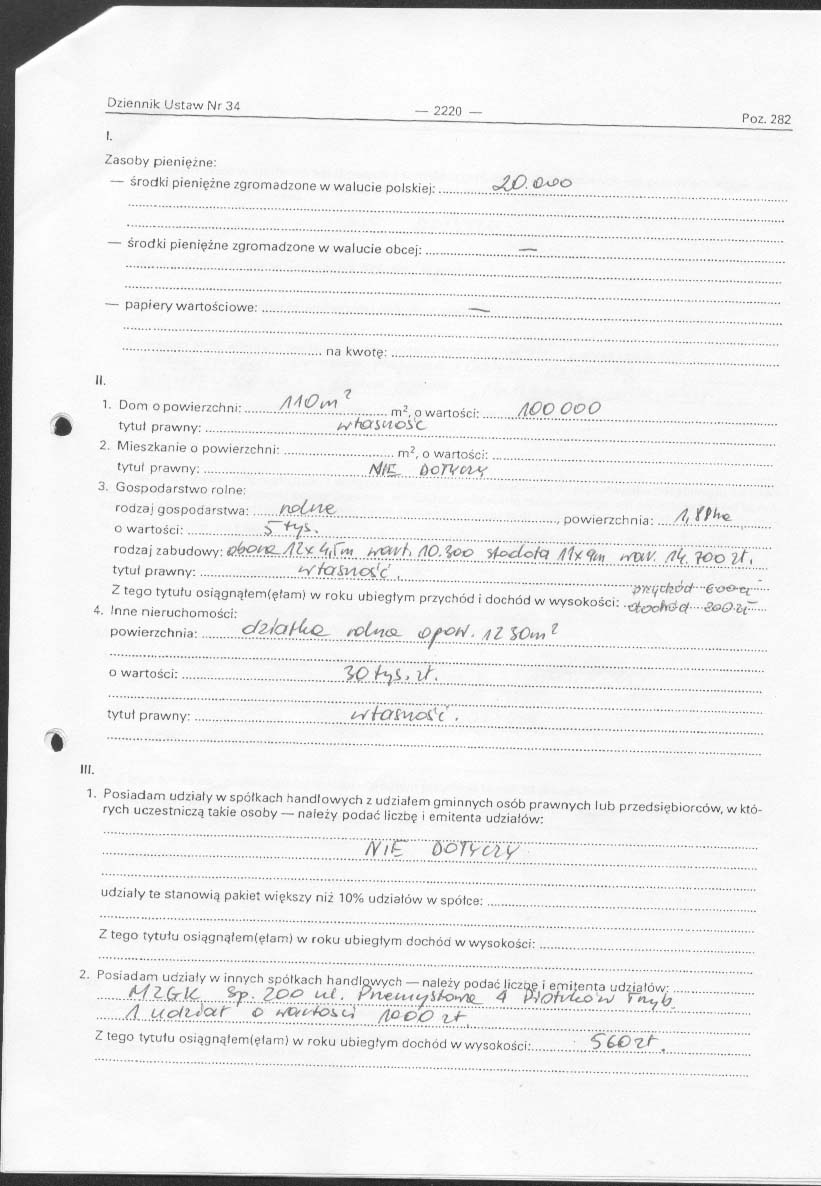 Dziennik Ustaw Nr 34 — 2220 — Poz. 282
I.
Zasoby pieniężne:
— środki pieniężne zgromadzone w walucie polskiej: 20.000
— środki pieniężne zgromadzone w walucie obcej: —
— papiery wartościowe: —
na kwotę:
II.
1. Dom o powierzchni: 110 m² m², o wartości: 100 000
tytuł prawny: własność
2. Mieszkanie o powierzchni: m², o wartości:
tytuł prawny: NIE DOTYCZY
3. Gospodarstwo rolne:
rodzaj gospodarstwa: rolne, powierzchnia: ha
o wartości: 5 tyś.
rodzaj zabudowy: obora 12x4,5m wart. 10.300 stodoła 11x9m war. 14.700 zł.
tytuł prawny: własność.
przychód 600 zł
Z tego tytułu osiągnąłem(ęłam) w roku ubiegłym przychód i dochód w wysokości: dochód 200 zł
4. Inne nieruchomości:
powierzchnia: działka rolna o pow. 1230m²
o wartości: 30 tyś. zł.
tytuł prawny: własność.
III.
1. Posiadam udziały w spółkach handlowych z udziałem gminnych osób prawnych lub przedsiębiorców, w któ-
rych uczestniczą takie osoby — należy podać liczbę i emitenta udziałów:
NIE DOTYCZY
udziały te stanowią pakiet większy niż 10% udziałów w spółce:
Z tego tytułu osiągnąłem(ęłam) w roku ubiegłym dochód w wysokości:
2. Posiadam udziały w innych spółkach handlowych — należy podać liczbę i emitenta udziałów:
MZGK Sp. ZOO ul. Przemysłowa 4 Piotrków Tryb.
1 udział o wartości 1000 zł.
Z tego tytułu osiągnąłem(ęłam) w roku ubiegłym dochód w wysokości: 560 zł.